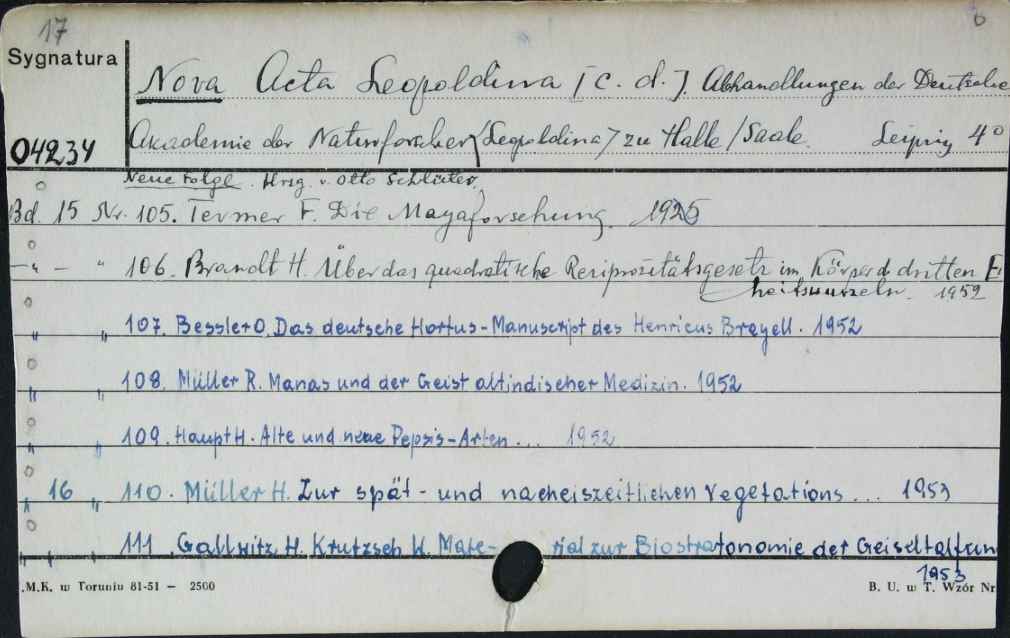 17 6
Sygnatura
Nova Acta Leopoldina [c. d.]. Abhandlungen der Deutsche
04234 Akademie der Naturforscher /Leopoldina/ zu Halle /Saale. Leipzig 4°
Neue Folge. Hrsg. v. Otto Schlüter.
Bd. 15 Nr. 105. Termer F. Die Mayaforschung. 1925
– " – " 106. Brandt H. Über das quadratische Reziprozitätsgesetz im Körper d. dritten Ei
heitswurzeln. 1952
" " 107. Bessler O. Das deutsche Hortus-Manuscript des Henricus Breyell. 1952
" " 108. Müller R. Manas und der Geist altindischer Medizin. 1952
" " 109. Haupt H. Alte und neue Pepsis-Arten... 1952
" 16 " 110. Müller H. Zur spät- und nacheiszeitlichen Vegetations... 1953
" " 111. Gallwitz H. Krutzsch W. Mate- rial zur Biostratonomie der Geiseltalfun
1953
.M.K. w Toruniu 81-51 – 2500 B. U. w T. Wzór Nr